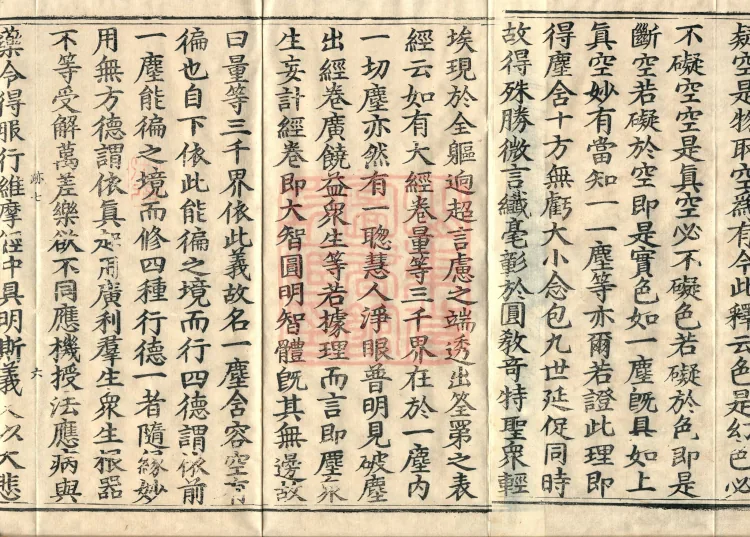 疑空是物取空為有今此釋云色是幻色必
不礙空空是真空必不礙色若礙於色即是
斷空若礙於空即是實色如一塵旣具如上
眞空妙有當知一一塵等亦爾若證此理即
得塵含十方無虧大小念包九世延促同時
故得殊勝微言纖毫彰於圓教奇特聖衆輕
埃現於全軀逈超言慮之端透出筌罤之表
經云如有大經卷量等三千界在於一塵内
一切塵亦然有一聰慧人淨眼普明見破塵
出經卷廣饒益衆生等若據理而言即塵
生妄計經卷即大智圓明智體旣其無邊故
曰量等三千界依此義故名一塵含容空有
徧也自下依此能徧之境而行四德謂依前
一塵能徧之境而修四種行德一者隨緣妙
用無方德謂依真起用廣利羣生衆生根器
不等受解萬差樂欲不同應機授法應病與
藥令得服行維摩經中具明斯義 以大悲
跡七
六